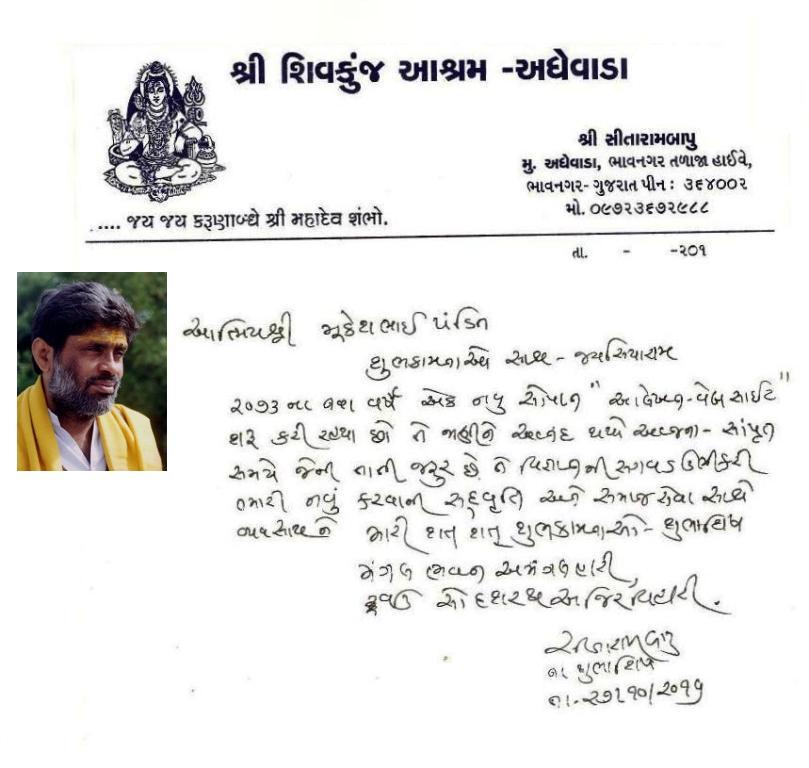 શ્રી શિવકુંજ આશ્રમ -અધેવાડા
શ્રી સીતારામબાપુ
મુ. અધેવાડા, ભાવનગર તળાજા હાઈવે,
ભાવનગર- ગુજરાત પીન : ૩૬૪૦૦૨
મો. ૦૯૭૨૩૬૭૨૯૮૮
.... જય જય કરૂણાબ્ધે શ્રી મહાદેવ શંભો.
તા. - -૨૦૧
આત્મિયશ્રી મૂકેશભાઈ પંડિત
શુભકામનાઓ સાથ - જયસિયારામ
૨૦૭૩ ના વર્ષે એક નવુ સોપાન "આલેખન-વેબસાઈટ"
શરૂ કરી રહ્યા છો તે જાણીને આનંદ થયો આજના - સાંપ્રત
સમયે જેની તાતી જરૂર છે તે ઉભીકરી
તમારી નવું કરવાની સદ્‌વૃતિ અને સમાજસેવા સાથે
વ્યવસાયને મારી શત્ શત્ શુભકામનાઓ - શુભાશિષ
મંગલ ભવન અમંગલહારી,
દ્રવઉ સો દશરથ અજિર વિહારી.
સીતારામબાપુ
ના શુભાશિષ